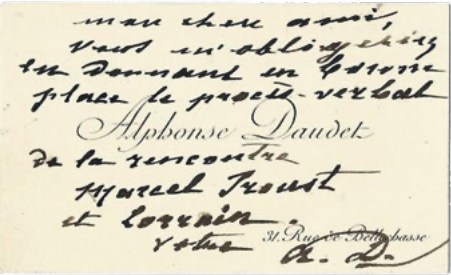 mon cher ami,
Vous m'obligeriez
en donnant en bonne
place le procès-verbal
Alphonse Daudet
de la rencontre
Marcel Proust
et Lorrain.
votre
31, Rue de Bellechasse
A. D.